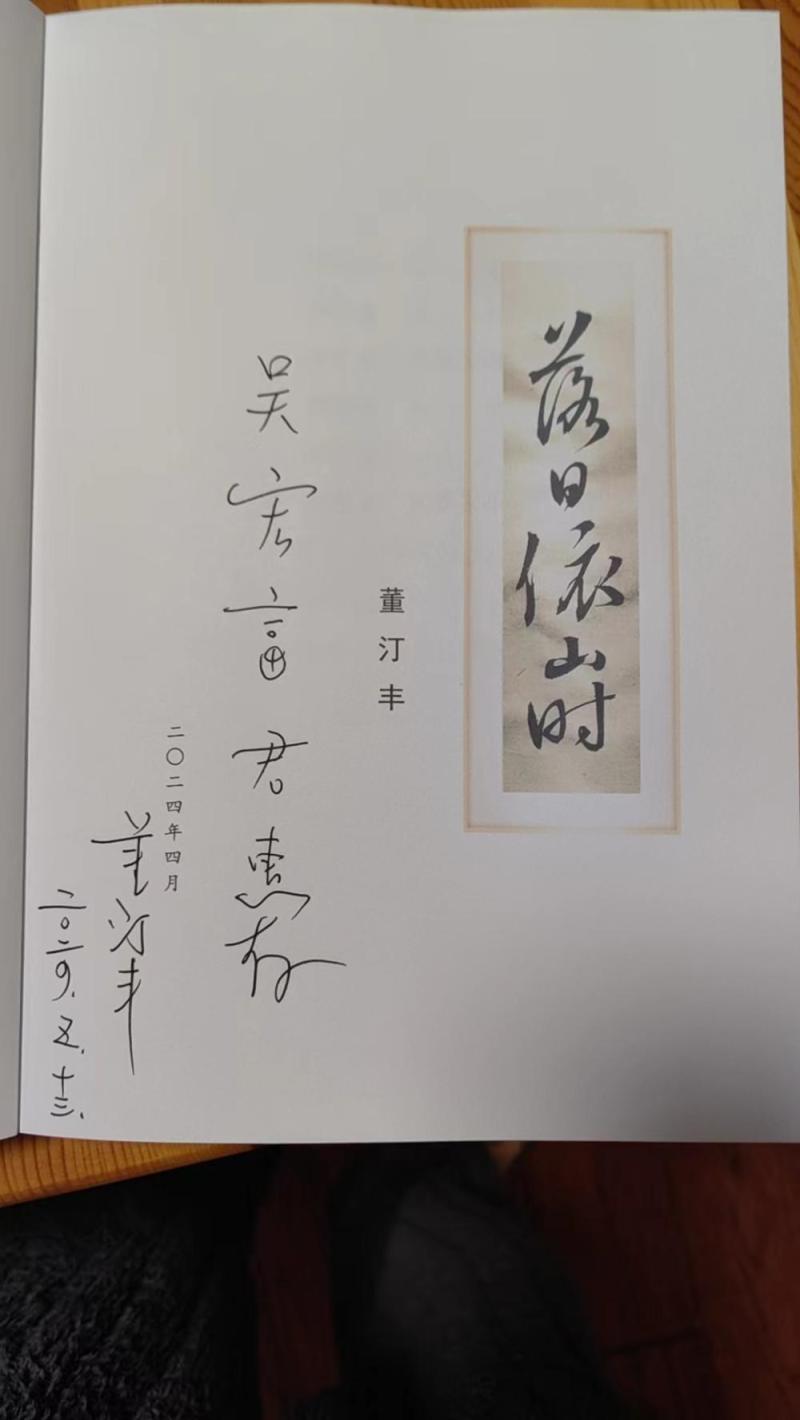 落日依山时
董汀丰
吴宏富君惠存
二〇二四年四月
董汀丰
二〇二四.五.十三.